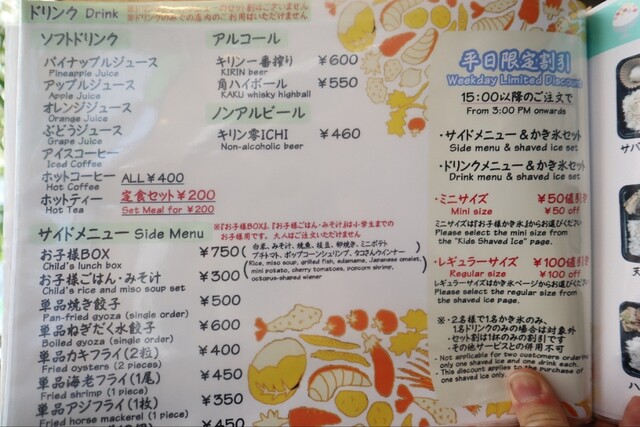 ドリンク Drink
※ドリンクのみでの店内のご利用はいただけません
ソフトドリンク
パイナップルジュース
Pineapple Juice
アップルジュース
Apple Juice
オレンジジュース
Orange Juice
ぶどうジュース
Grape Juice
アイスコーヒー
Iced Coffee
ホットコーヒー ALL¥400
Hot Coffee
ホットティー 定食セット¥200
Hot Tea Set Meal for ¥200
アルコール
キリン一番搾り ¥600
KIRIN beer
角ハイボール ¥550
KAKU whisky highball
ノンアルビール
キリン零ICHI ¥460
Non-alcoholic beer
サイドメニュー Side Menu
※『お子様BOX』、『お子様ごはん・みそ汁』は小学生までの
お子様用です。大人はご注文いただけません
お子様BOX ¥750
Child's lunch box
白米、みそ汁、焼魚、枝豆、卵焼き、ミニポテト
プチトマト、ポップコーンシュリンプ、タコさんウインナー
Rice, miso soup, grilled fish, edamame, Japanese omelet,
mini potato, cherry tomatoes, popcorn shrimp,
octopus-shaped wiener
お子様ごはん・みそ汁 ¥300
Child's rice and miso soup set
単品焼き餃子 ¥500
Pan-fried gyoza (single order)
単品ねぎだく水餃子 ¥600
Boiled gyoza (single order)
単品カキフライ(2粒) ¥400
Fried oysters (2 pieces)
単品海老フライ(1尾) ¥450
Fried shrimp (1 piece)
単品アジフライ(1枚) ¥350
Fried horse mackerel (1 piece)
¥450
平日限定割引
Weekday Limited Discount
15:00以降のご注文で
From 3:00 PM onwards
・サイドメニュー&かき氷セット
Side menu & shaved ice set
・ドリンクメニュー&かき氷セット
Drink menu & shaved ice set
・ミニサイズ ¥50値引き
Mini size ¥50 off
ミニサイズは『お子様かき氷』からお選びください
Please select the mini size from
the "Kids Shaved Ice" page.
・レギュラーサイズ ¥100値引き
Regular size ¥100 off
レギュラーサイズはかき氷ページからお選びください
Please select the regular size from
the shaved ice page.
※・2名様で1名かき氷のみ、
1名ドリンクのみの場合は対象外
・セット割は1杯のみの割引です
・その他サービスとの併用不可
- Not applicable for two customers ordering
only one shaved ice and one drink each.
- This discount applies to the purchase of
one shaved ice only.
サバ
天